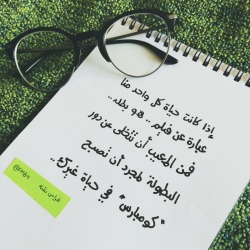 إذا كانت حياة كل واحد منا
عبارة عن فيلم .. هو بطله ..
فمن المعيب أن نتخلى عن دور
البطولة لمجرد أن نصبح
"كومبارس" في حياة غيرك ..